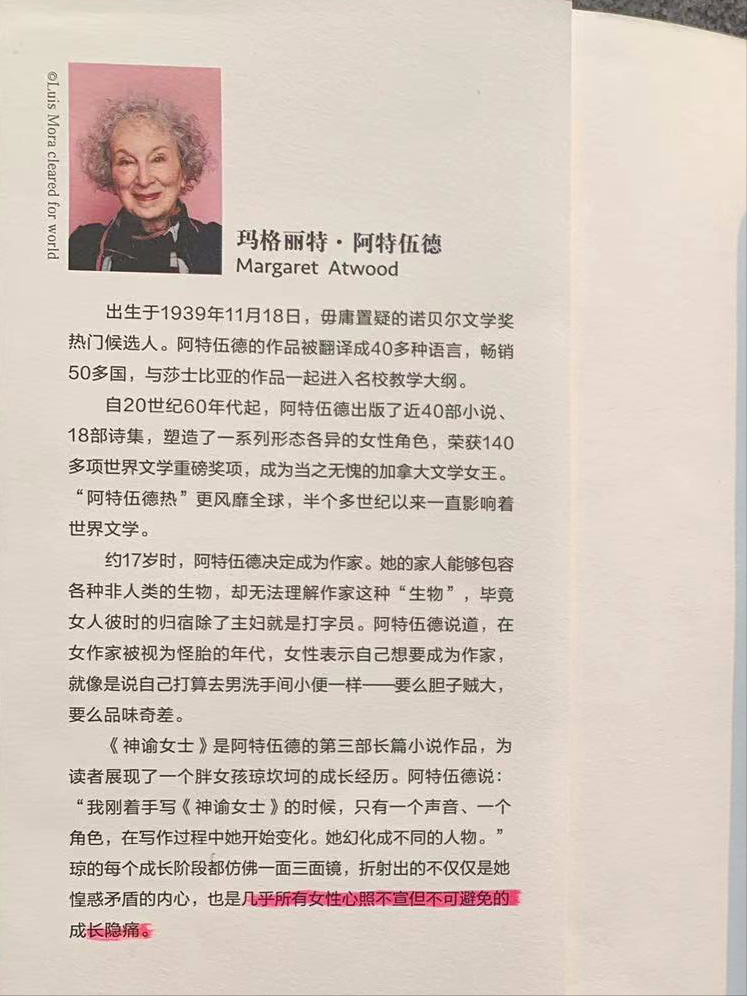 ©Luis Mora cleared for world
玛格丽特·阿特伍德
Margaret Atwood
出生于1939年11月18日，毋庸置疑的诺贝尔文学奖
热门候选人。阿特伍德的作品被翻译成40多种语言，畅销
50多国，与莎士比亚的作品一起进入名校教学大纲。
自20世纪60年代起，阿特伍德出版了近40部小说、
18部诗集，塑造了一系列形态各异的女性角色，荣获140
多项世界文学重磅奖项，成为当之无愧的加拿大文学女王。
“阿特伍德热”更风靡全球，半个多世纪以来一直影响着
世界文学。
约17岁时，阿特伍德决定成为作家。她的家人能够包容
各种非人类的生物，却无法理解作家这种“生物”，毕竟
女人彼时的归宿除了主妇就是打字员。阿特伍德说道，在
女作家被视为怪胎的年代，女性表示自己想要成为作家，
就像是说自己打算去男洗手间小便一样——要么胆子贼大，
要么品味奇差。
《神谕女士》是阿特伍德的第三部长篇小说作品，为
读者展现了一个胖女孩琼坎坷的成长经历。阿特伍德说：
“我刚着手写《神谕女士》的时候，只有一个声音、一个
角色，在写作过程中她开始变化。她幻化成不同的人物。”
琼的每个成长阶段都仿佛一面三面镜，折射出的不仅仅是她
惶惑矛盾的内心，也是几乎所有女性心照不宣但不可避免的
成长隐痛。